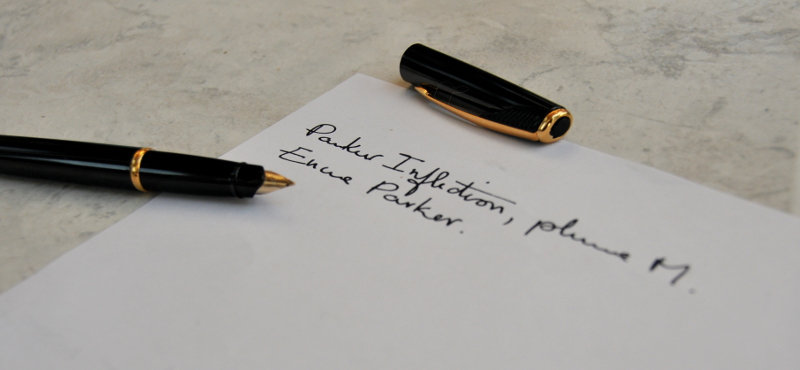 Parker Inflection, plume M.
Encre Parker.